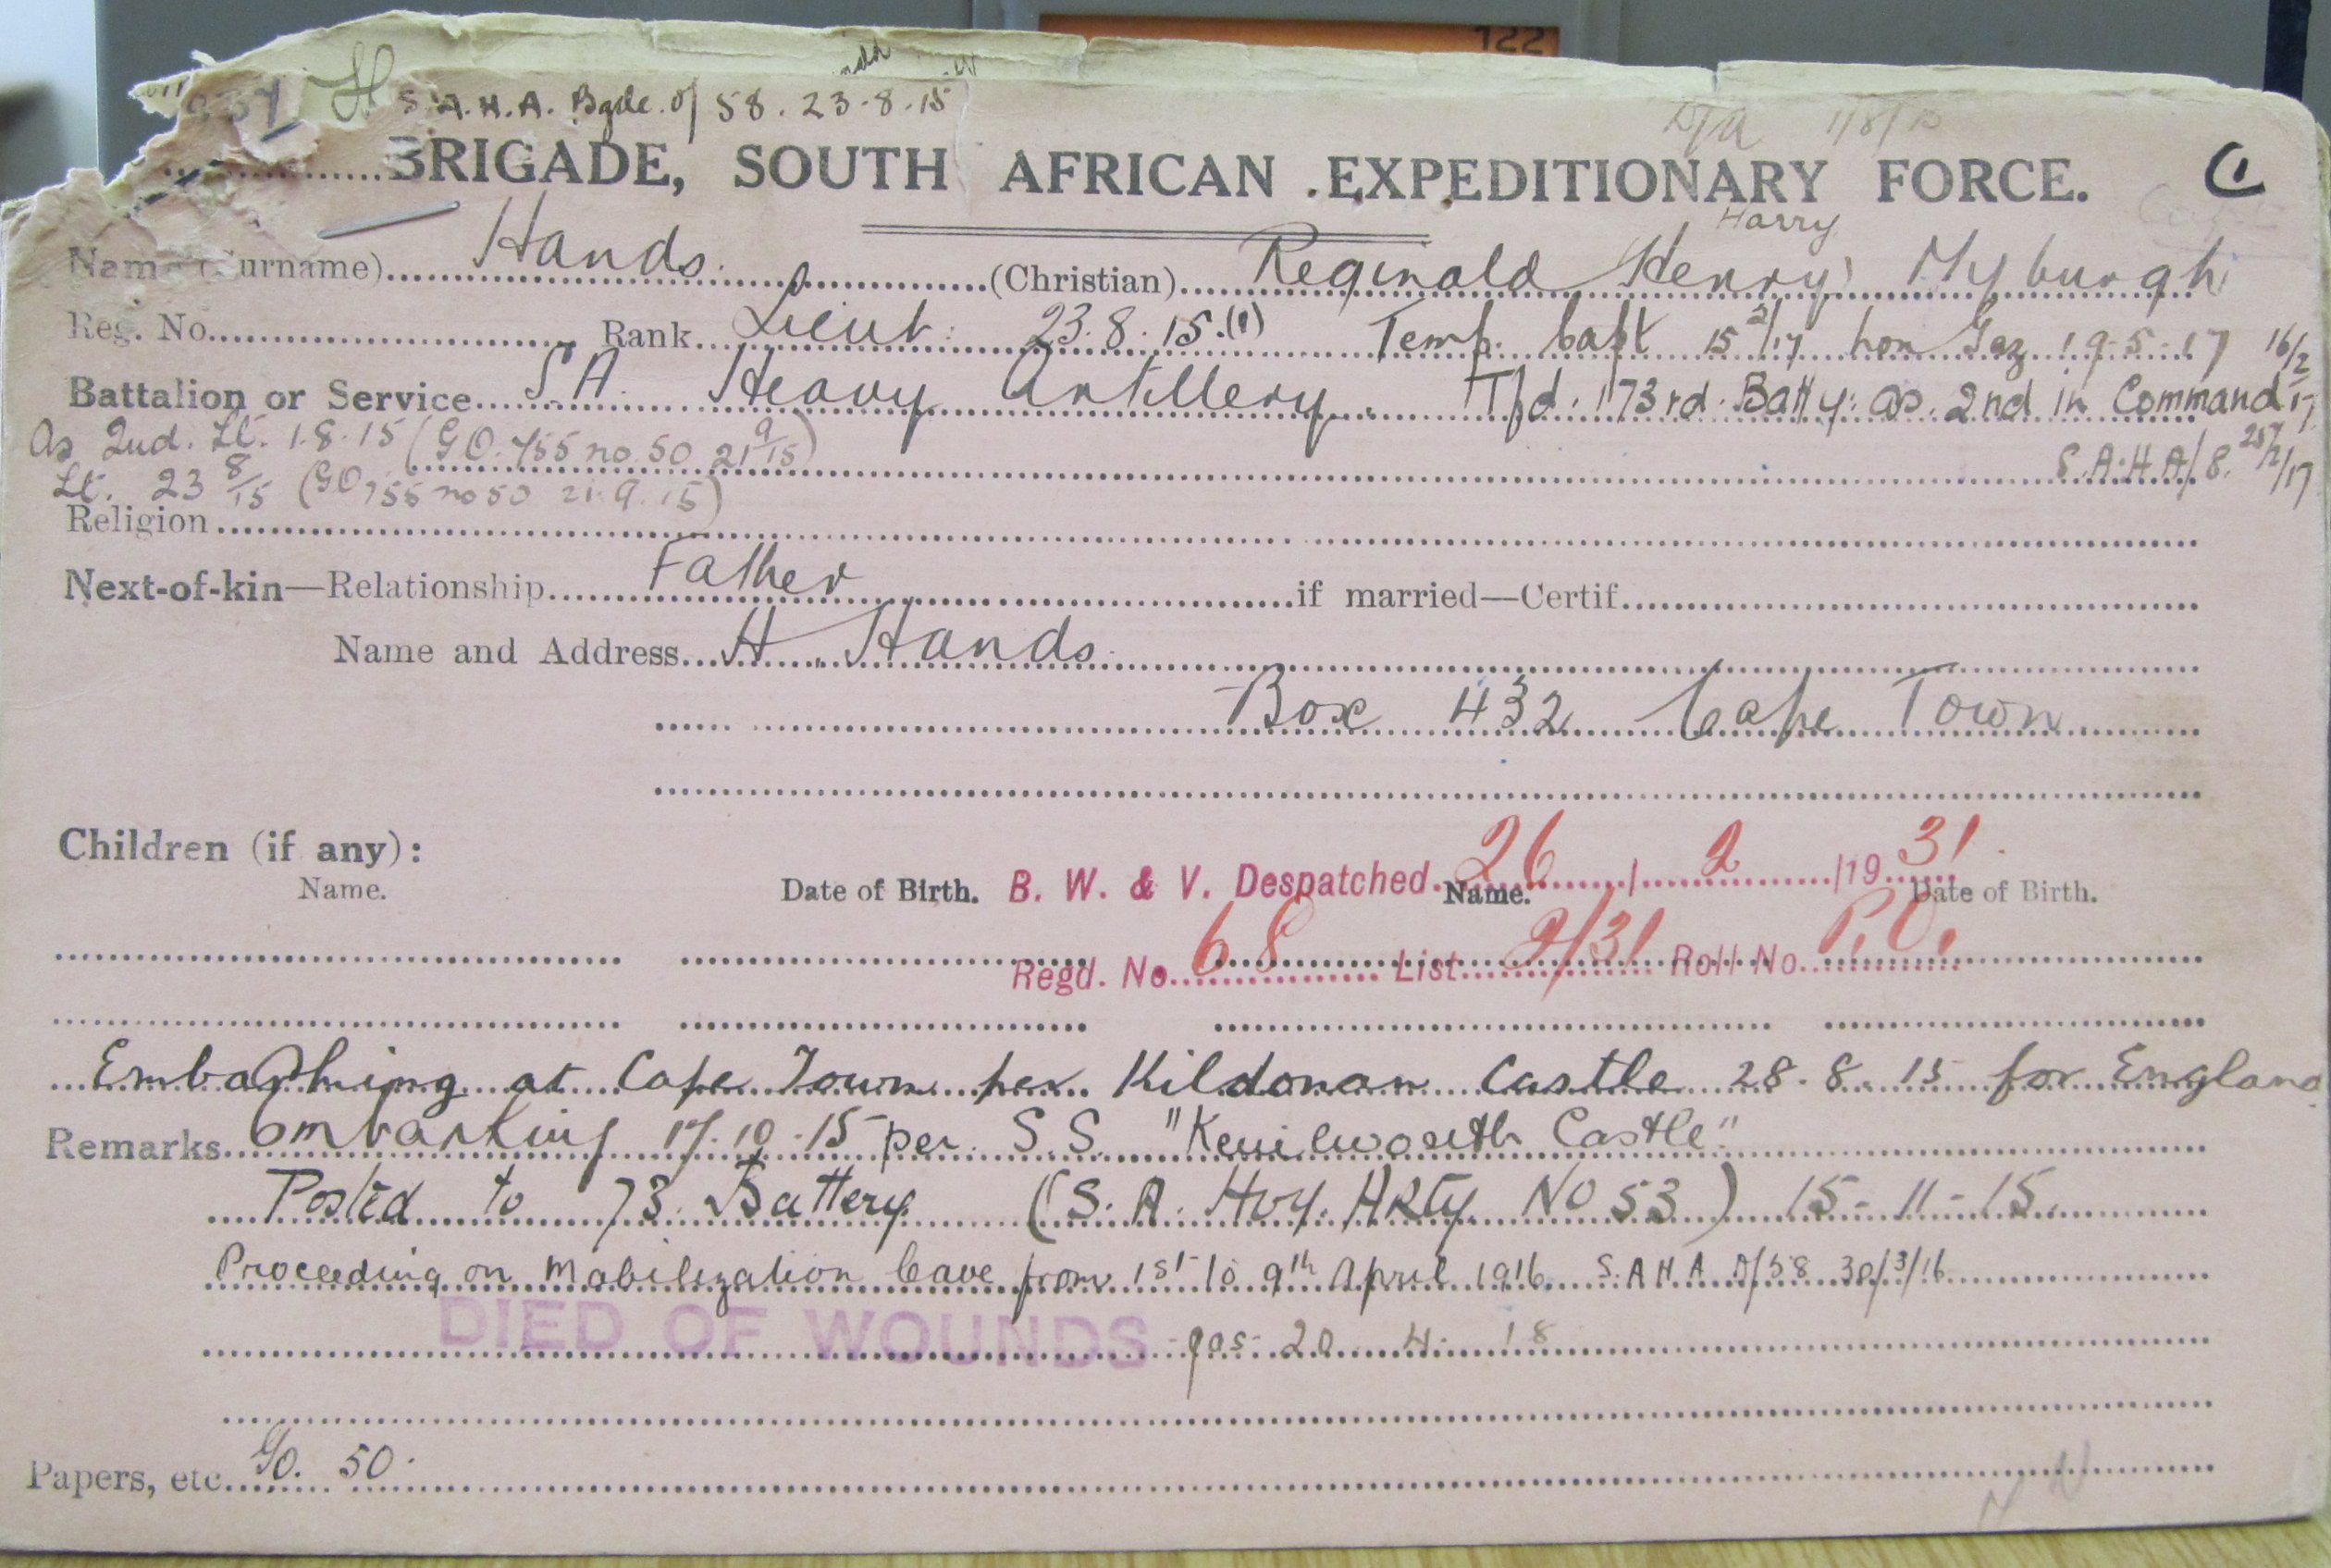 122
S.A.H.A. Bgde. of 58. 23-8-15
D/A 1/8/15
BRIGADE, SOUTH AFRICAN EXPEDITIONARY FORCE.
Harry
Name (Surname) Hands. (Christian) Reginald Henry Myburgh
Reg. No. Rank Lieut: 23.8.15.(1) Temp. Capt 15 2/17 hon Gaz 19-5-17 16/2/17
Battalion or Service S.A. Heavy Artillery. T/d. 173rd. Batty: as 2nd in Command
As 2nd. Lt. 1.8.15 (G.O. 755 no. 50 21 9/15) S.A.H.A/8.
Lt. 23 8/15 (GO 755 no 50 21.9.15)
Religion
Next-of-kin—Relationship Father if married—Certif.
Name and Address H. Hands.
Box 432 Cape Town
Children (if any):
B. W. & V. Despatched 26 / 2 /19 31.
Name. Date of Birth. Name. Date of Birth.
Regd. No. 68 List 2/31 Roll No. P.O.
Embarking at Cape Town per Kildonan Castle 28-8-15 for England
Remarks Embarking 17-10-15 per S.S. "Kenilworth Castle"
Posted to 73 Battery (S.A. Hvy. Arty. No 53) 15-11-15.
Proceeding on Mobilization leave from 1st to 9th April 1916. S.A.H.A. D/58 30/3/16
DIED OF WOUNDS -gas- 20 4- 18
Papers, etc. G.O. 50.